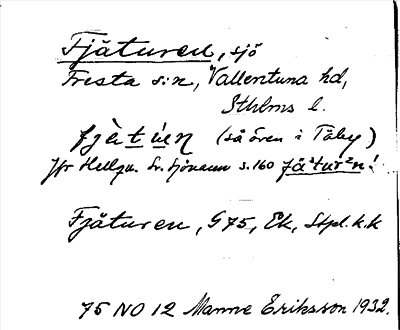 Fjäturen, sjö
Fresta s:n, Vallentuna hd,
Sthlms l.
fjètúen (så även i Täby)
Jfr Hellqu. Sv. sjönamn s. 160 fjä²tur²n!
Fjäturen, G 75, Ek, Stpl. k.k
75 NO 12 Manne Eriksson 1932.